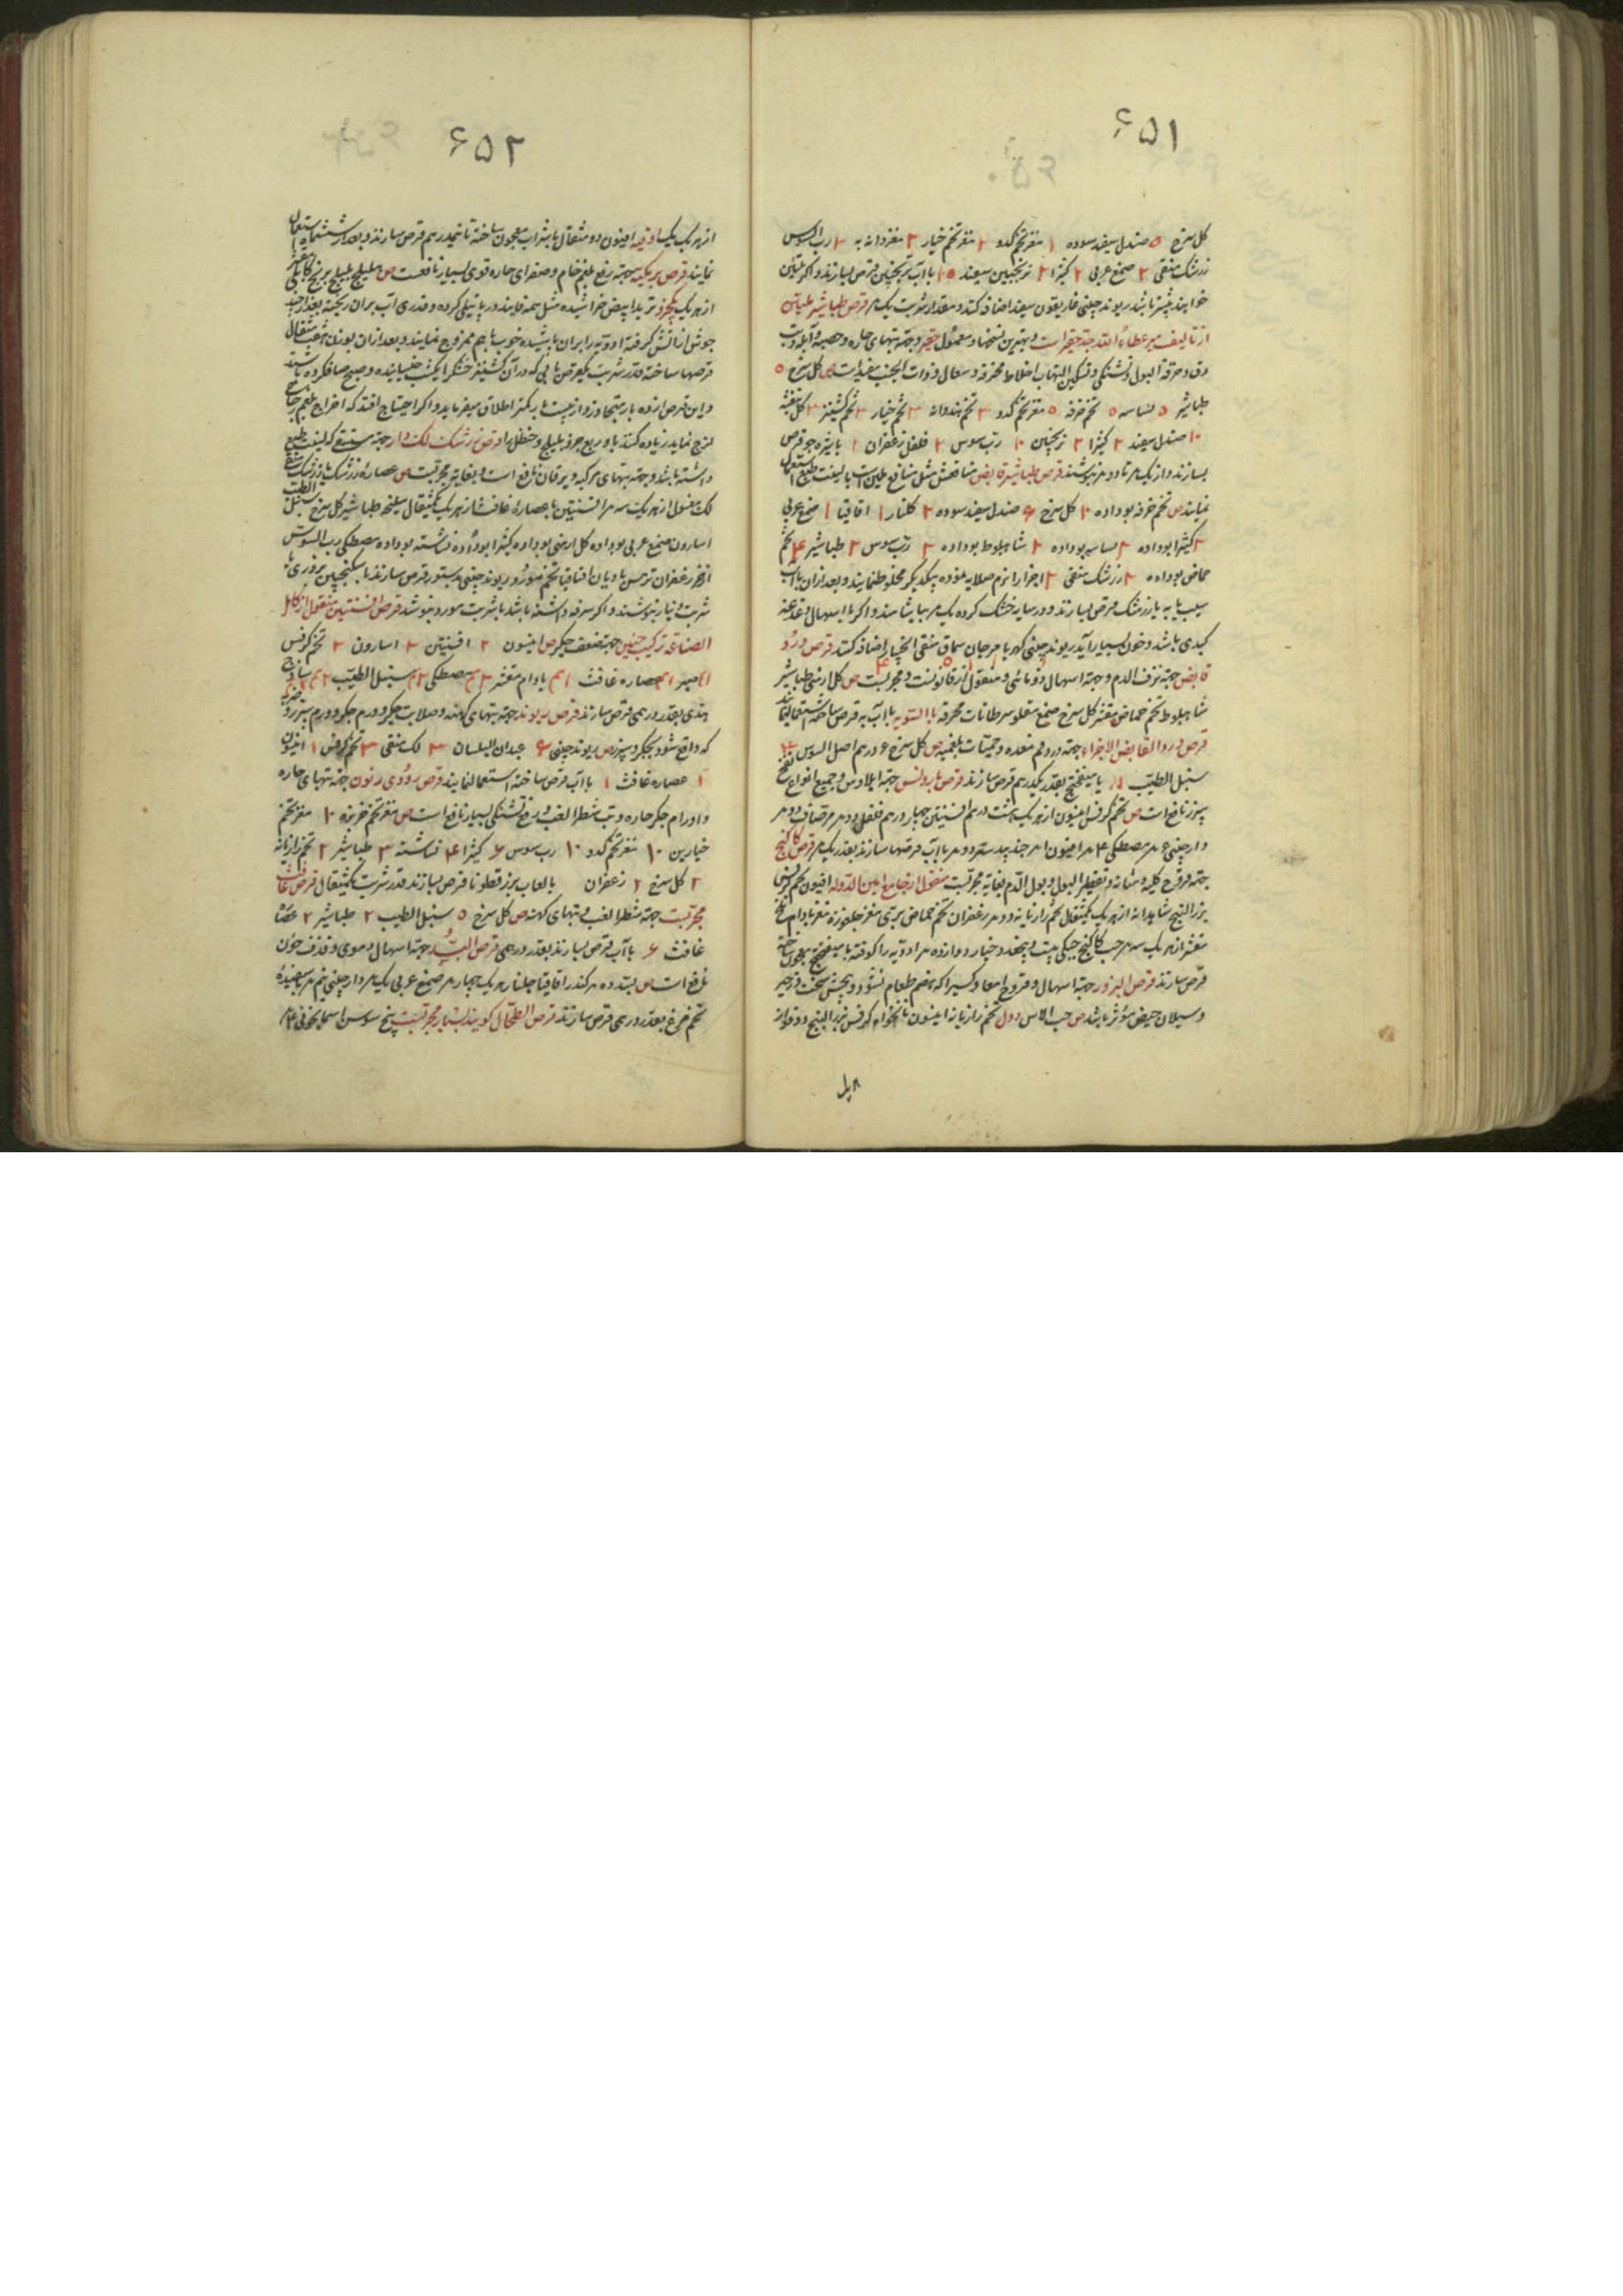 ۶۵۱
کل سرخ ۵ صندل سفید سوده ۱ مغز تخم کدو ۲ مغز تخم خیار ۲ مغز دانه به ۲ رب السوس
زرشک منقی ۲ صمغ عربی ۲ کتیرا ۲ ترنجبین سفید ۱۵ با آب ترنجبین قرص بسازند و اکر تلیین
خواهند بیشتر باشد ریوند چینی غاریقون سفید اضافه کنند و مقدار شربت یک م قرص طباشیر ملین
از تالیف میر عطاء الله جد حقیر است و بهترین نسخها و معمول حقیر و جهة تبهای حاره و حصبه و آبله و تب
دق و حرقة البول و تشنکی و تسکین التهاب اخلاط محترقه و سعال و ذات الجنب مفید است ص کل سرخ ۵
طباشیر ۵ نشاسه ۵ تخم خرفه ۵ مغز تخم کدو ۳ تخم هندوانه ۳ تخم خیار ۳ تخم کشنیز ۳ کل بنفشه
۱۰ صندل سفید ۲ کتیرا ۲ ترنجبین ۱۰ رب سوس ۲ فلفل زعفران ۱ با شیره جو قرص
بسازند و از یک م تا دو م بنوشند قرص طباشیر قابض منافعش مثل منافع ملین است با لینت طبع استعمال
نمایند ص تخم خرفه بوداده ۱۰ کل سرخ ۶ صندل سفید سوده ۲ کلنار ۱ اقاقیا ۱ صمغ عربی
۲ کتیرا بوداده ۲ نشاسه بوداده ۲ شاه بلوط بوداده ۲ رب سوس ۲ طباشیر ۴ تخم
حماض بوداده ۲ زرشک منقی ۲ اجزا را نرم صلایه نموده بیکدیکر مخلوط نمایند و بعد از ان با آب
سیب یا به یا زرشک قرص بسازند و در سایه خشک کرده یک م بیاشامند و اکر با اسهال دغدغه
کبدی باشد و خون بسیار آید ریوند چینی کهربا مرجان سماق منقی انجبار اضافه کنند قرص ورد
قابض جهة نزف الدم و جهة اسهال ذوبانی و منقول از قانونست و مجربست ص کل ارمنی طباشیر
شاه بلوط تخم حماض مقشر کل سرخ صمغ مقلو سرطانات محرقه بالسویه با آب به قرص ساخته استعمال نمایند
قرص ورد القابض الاجزاء جهة درد فم معده و حمیات بلغمیه ص کل سرخ ۶ درهم اصل السوس ۴
سنبل الطیب ۲ با میفختج بقدر یکدرهم قرص سازند قرص بارولس جهة ایلاوس و جمیع انواع نفخ
سپرز نافع است ص تخم کرفس انیسون از هر یک هشت درهم افسنتین چهار درهم فلفل دو م مر صاف دو م
دارچینی ۶ م مصطکی ۴ م افیون ۱ م جندبیدستر دو م با آب قرصها سازند بقدر یک م قرص کاکنج
جهة قروح کلیه و مثانه و تقطیر البول و بول الدم بغایة مجربست منقول از جامع امین الدوله افیون تخم کرفس
بزر البنج شاهدانه از هر یک یکمثقال تخم رازیانه دو م زعفران تخم حماض بری مغز جلغوزه مغز بادام تلخ
مقشر از هر یک سه م حب کاکنج جبلی بیست و پنجعدد خیار دوازده م ادویه را کوفته با میفختج معجون ساخته
قرص سازند قرص البزور جهة اسهال و قروح امعا و کسیرا که هضم طعام نشود و پیچش سخت و زحیر
و سیلان حیض مؤثر باشد ص حب الاس دول تخم رازیانه انیسون نانخواه کرفس بزر البنج دوقو از
۶۵۲
از هر یک یک اوقیه افیون دو مثقال با شراب معجون ساخته تا نیمدرهم قرص سازند و بعد از ششماه استعمال
نمایند قرص بریکیه جهة رفع بلغم خام و صفرای حاره قوی بسیار نافعست ص هلیلج بلیلج برنج کابلی مقشر
از هر یک یکجزو تربد ابیض خراشیده مثل همه قانید در پاتیلی کرده و قدری آب بر ان ریخته بعد از چند
جوش از اتش کرفته ادویه را بران پاشیده خوب باهم ممزوج نمایند و بعد از ان بوزن هشت مثقال
قرصها ساخته قدر شربت یکقرص با آبی که در آن کشنیز خشک را یکشب خیسانیده و صبح صاف کرده باشند
و این قرص از ده بار متجاوز و از بیست بار کمتر اطلاق میفرماید و اکر احتیاج افتد که اخراج بلغم زجاجی
لزج نماید زیاده کنند با و ربع جزو بلیلج و حنظل را قرص زرشک لک دار جهة استسقا که لینت طبع
داشته باشد و جهة تبهای مرکبه و یرقان نافع است و بغایة مجربست ص عصاره زرشک یا زرشک منقی
لک مغسول از هر یک سه م افسنتین یا عصاره غافث از هر یک یکمثقال سلیخه طباشیر کل سرخ سنبل الطیب
اسارون صمغ عربی بوداده کل ارمنی بوداده کتیرا بوداده نشاسته بوداده مصطکی رب السوس
اذخر زعفران ترمس بادیان اقاقیا تخم مورد ریوند چینی بدستور قرص سازند با سکنجبین بزوری یا
شربت دینار بنوشند و اکر سرفه داشته باشد با شربت مورد بنوشد قرص افسنتین منقول از کامل
الصناعة ترکیب حنین جهة ضعف جکر ص انیسون ۲ افسنتین ۲ اسارون ۲ تخم کرفس
۲م صبر ۱م عصاره غافث ۱م بادام مقشر ۲م مصطکی ۲م سنبل الطیب ۲م ساذج
هندی بقدر درهمی قرص سازند قرص ریوند جهة تبهای کهنه و صلابت جکر و ورم جکر و ورم سپرز و ضربه
که واقع شود بجکر و سپرز ص ریوند چینی ۶ عیدان البلسان ۳ لک منقی ۳ تخم کرفس ۱ انیسون
۱ عصاره غافث ۱ با آب قرص ساخته استعمال نمایند قرص زودی زنون جهة تبهای حاره
و اورام جکر حاره و تب شطر الغب و رفع تشنکی بسیار نافع است ص مغز تخم خربزه ۱۰ مغز تخم
خیارین ۱۰ مغز تخم کدو ۱۰ رب سوس ۶ کتیرا ۴ نشاسته ۳ طباشیر ۲ تخم رازیانه
۲ کل سرخ ۲ زعفران با لعاب بزر قطونا قرص بسازند قدر شربت یکمثقال قرص غافث
مجربست جهة شطر الغب و تبهای کهنه ص کل سرخ ۵ سنبل الطیب ۲ طباشیر ۲ عصاره
غافث ۶ با آب قرص بسازند بقدر درهمی قرص البسد جهة اسهال دموی و قذف خون
نافع است ص بسد ده م کندر اقاقیا جلنار هر یک چهار م صمغ عربی یک م دارچینی نیم م با سفیده
تخم مرغ بقدر درهمی قرص سازند قرص الطحال کویند بسیار مجربست بیخ سوسن اسمانجونی ۴ م